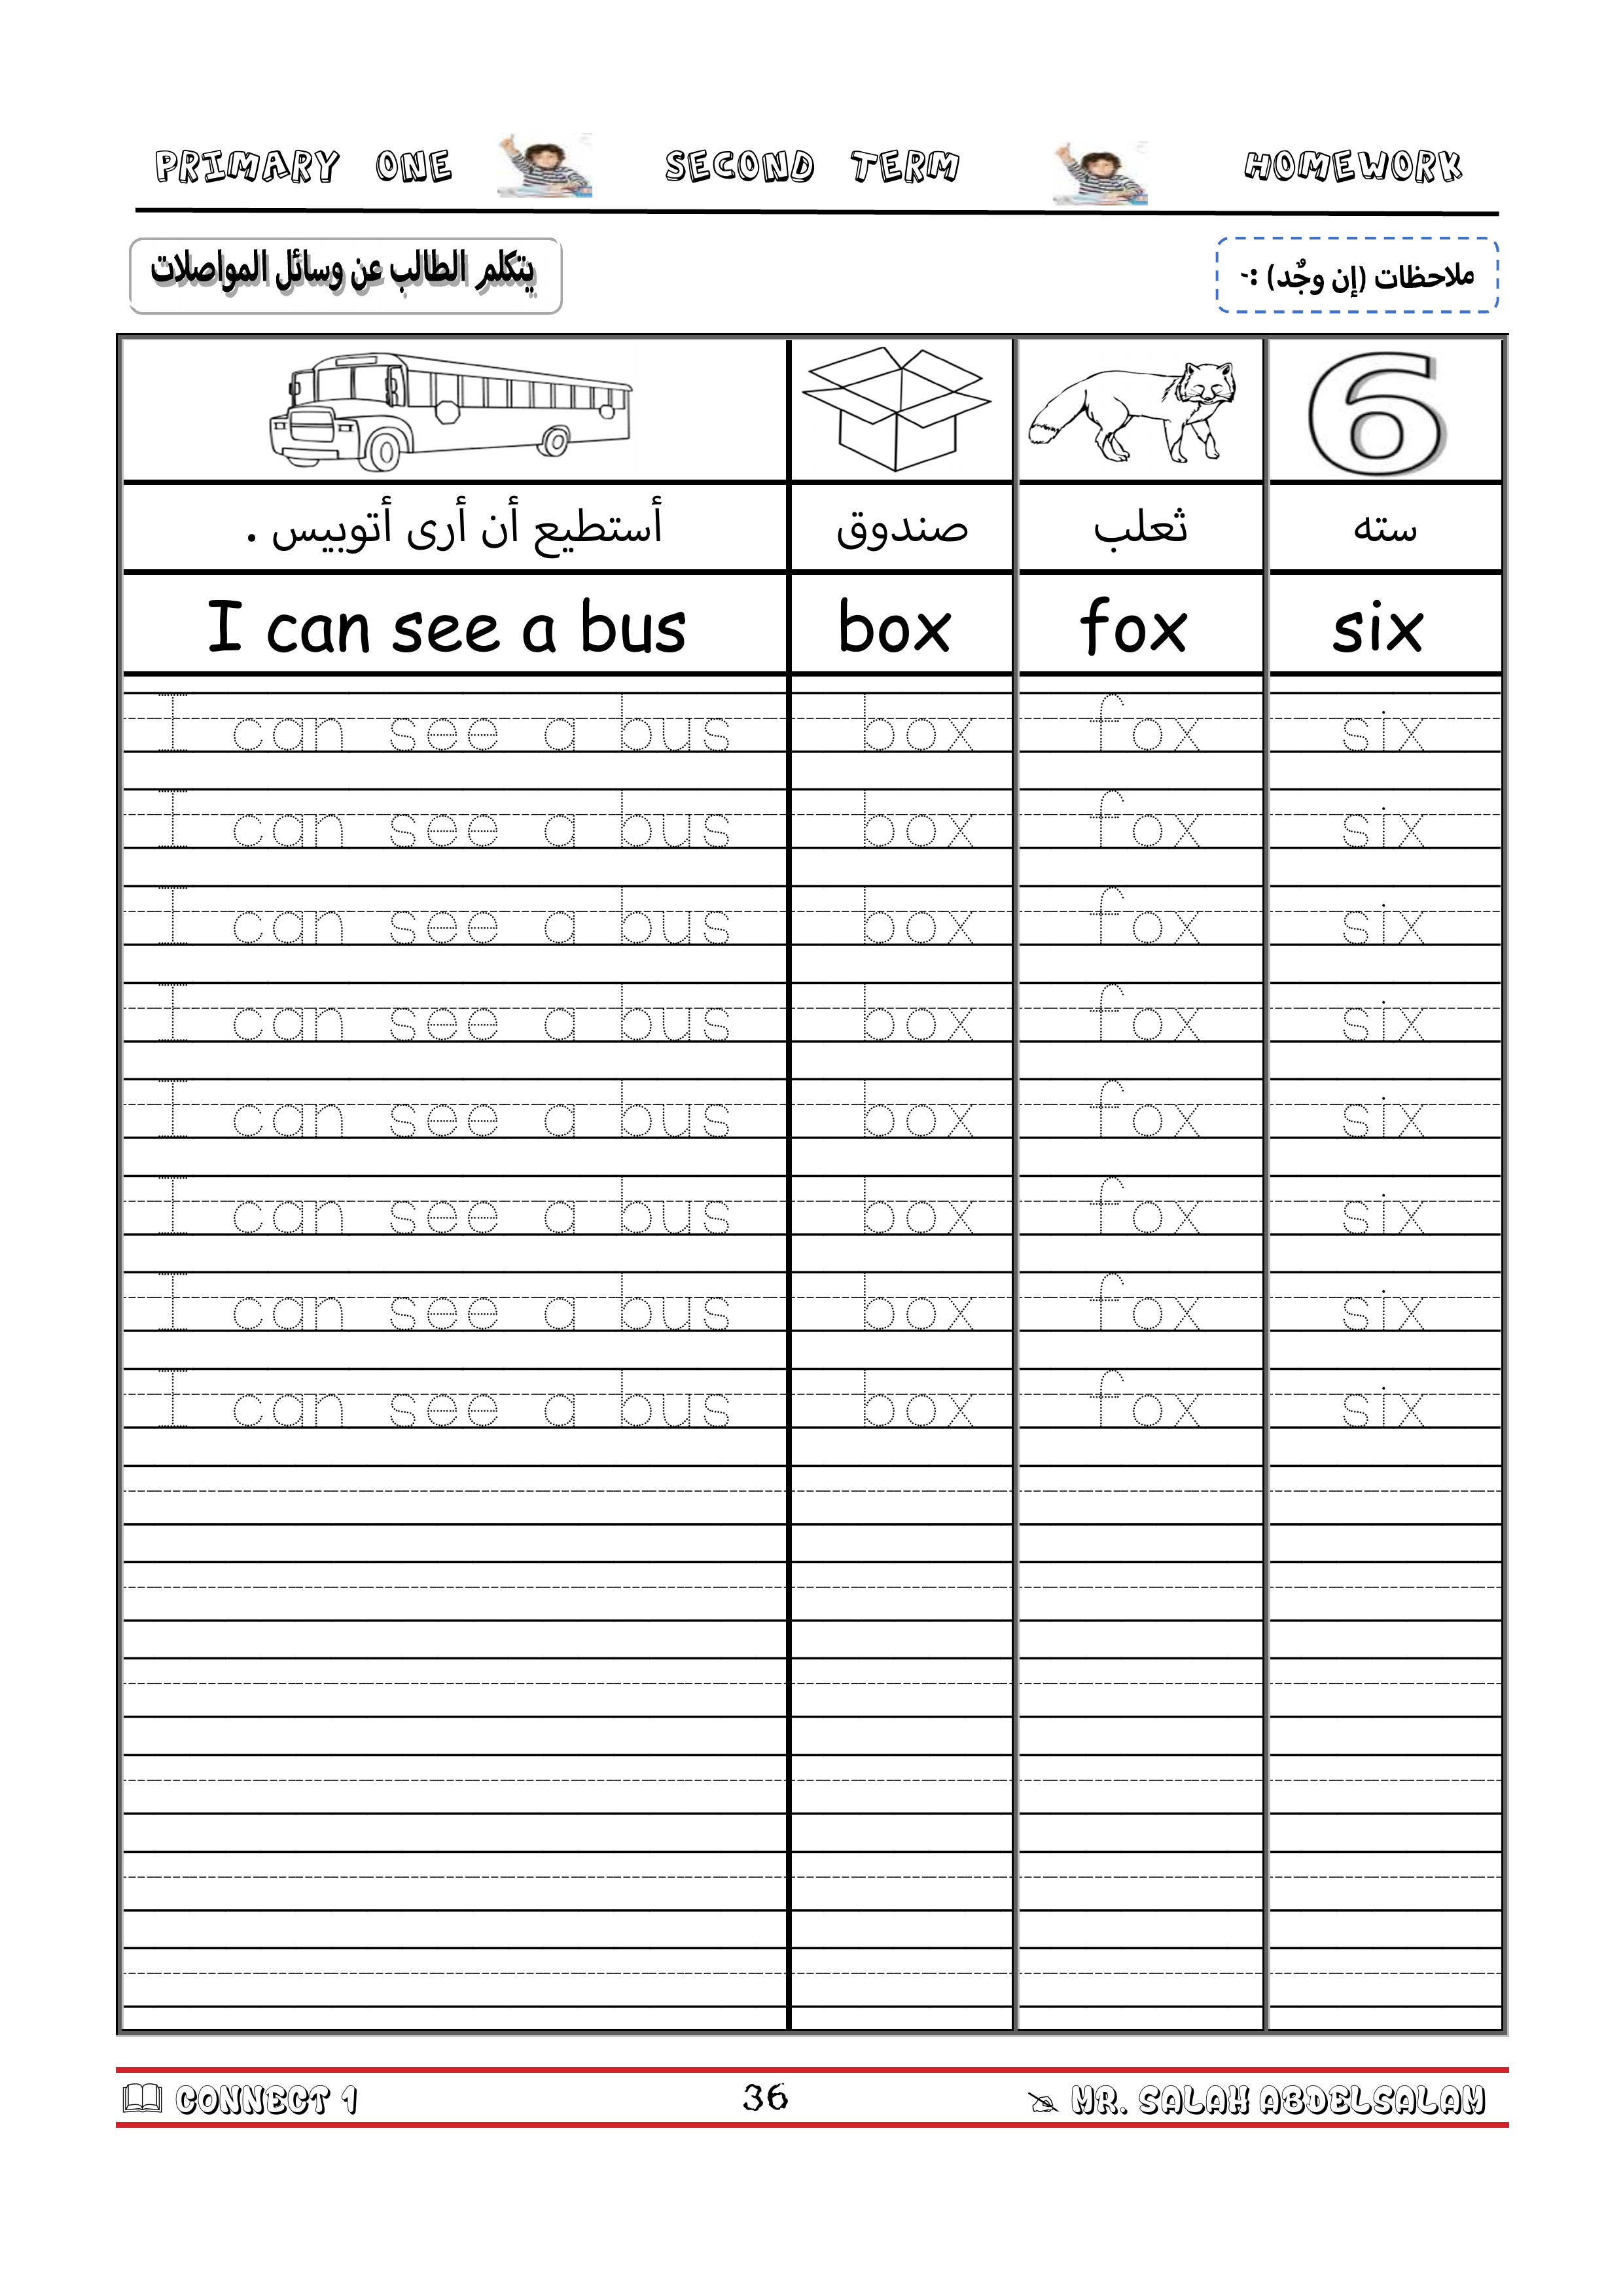 PRIMARY ONE SECOND TERM HOMEWORK
يتكلم الطالب عن وسائل المواصلات
ملاحظات (إن وجٌد) :-
6
أستطيع أن أرى أتوبيس . صندوق ثعلب سته
I can see a bus box fox six
I can see a bus box fox six
I can see a bus box fox six
I can see a bus box fox six
I can see a bus box fox six
I can see a bus box fox six
I can see a bus box fox six
I can see a bus box fox six
I can see a bus box fox six
CONNECT 1 36 MR. SALAH ABDELSALAM